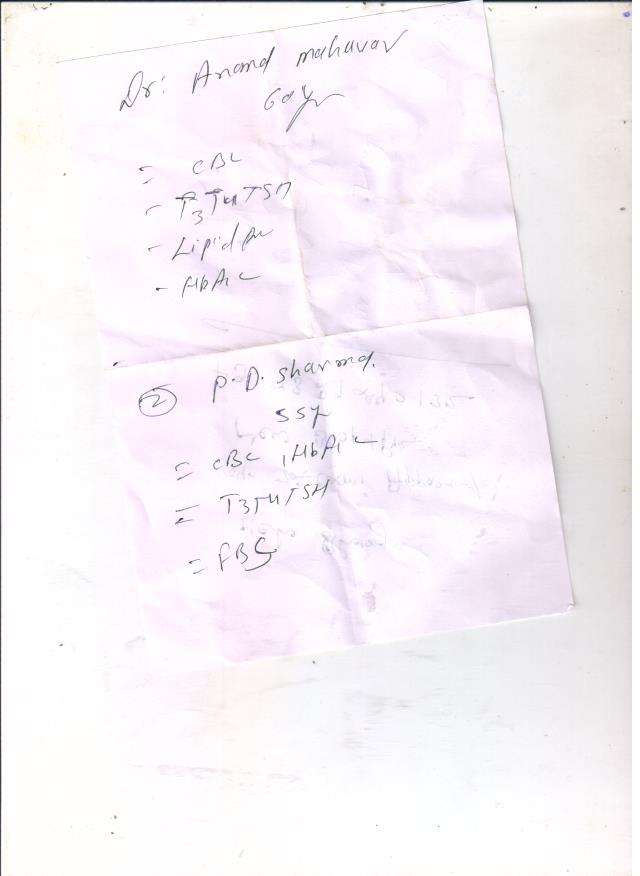 Dr: Anand mahavar
60y
= CBC
- T3T4TSH
- Lipid
- HbA1c
② P.D. Sharma.
55y
= CBC, HbA1c
= T3T4TSH
= FBS